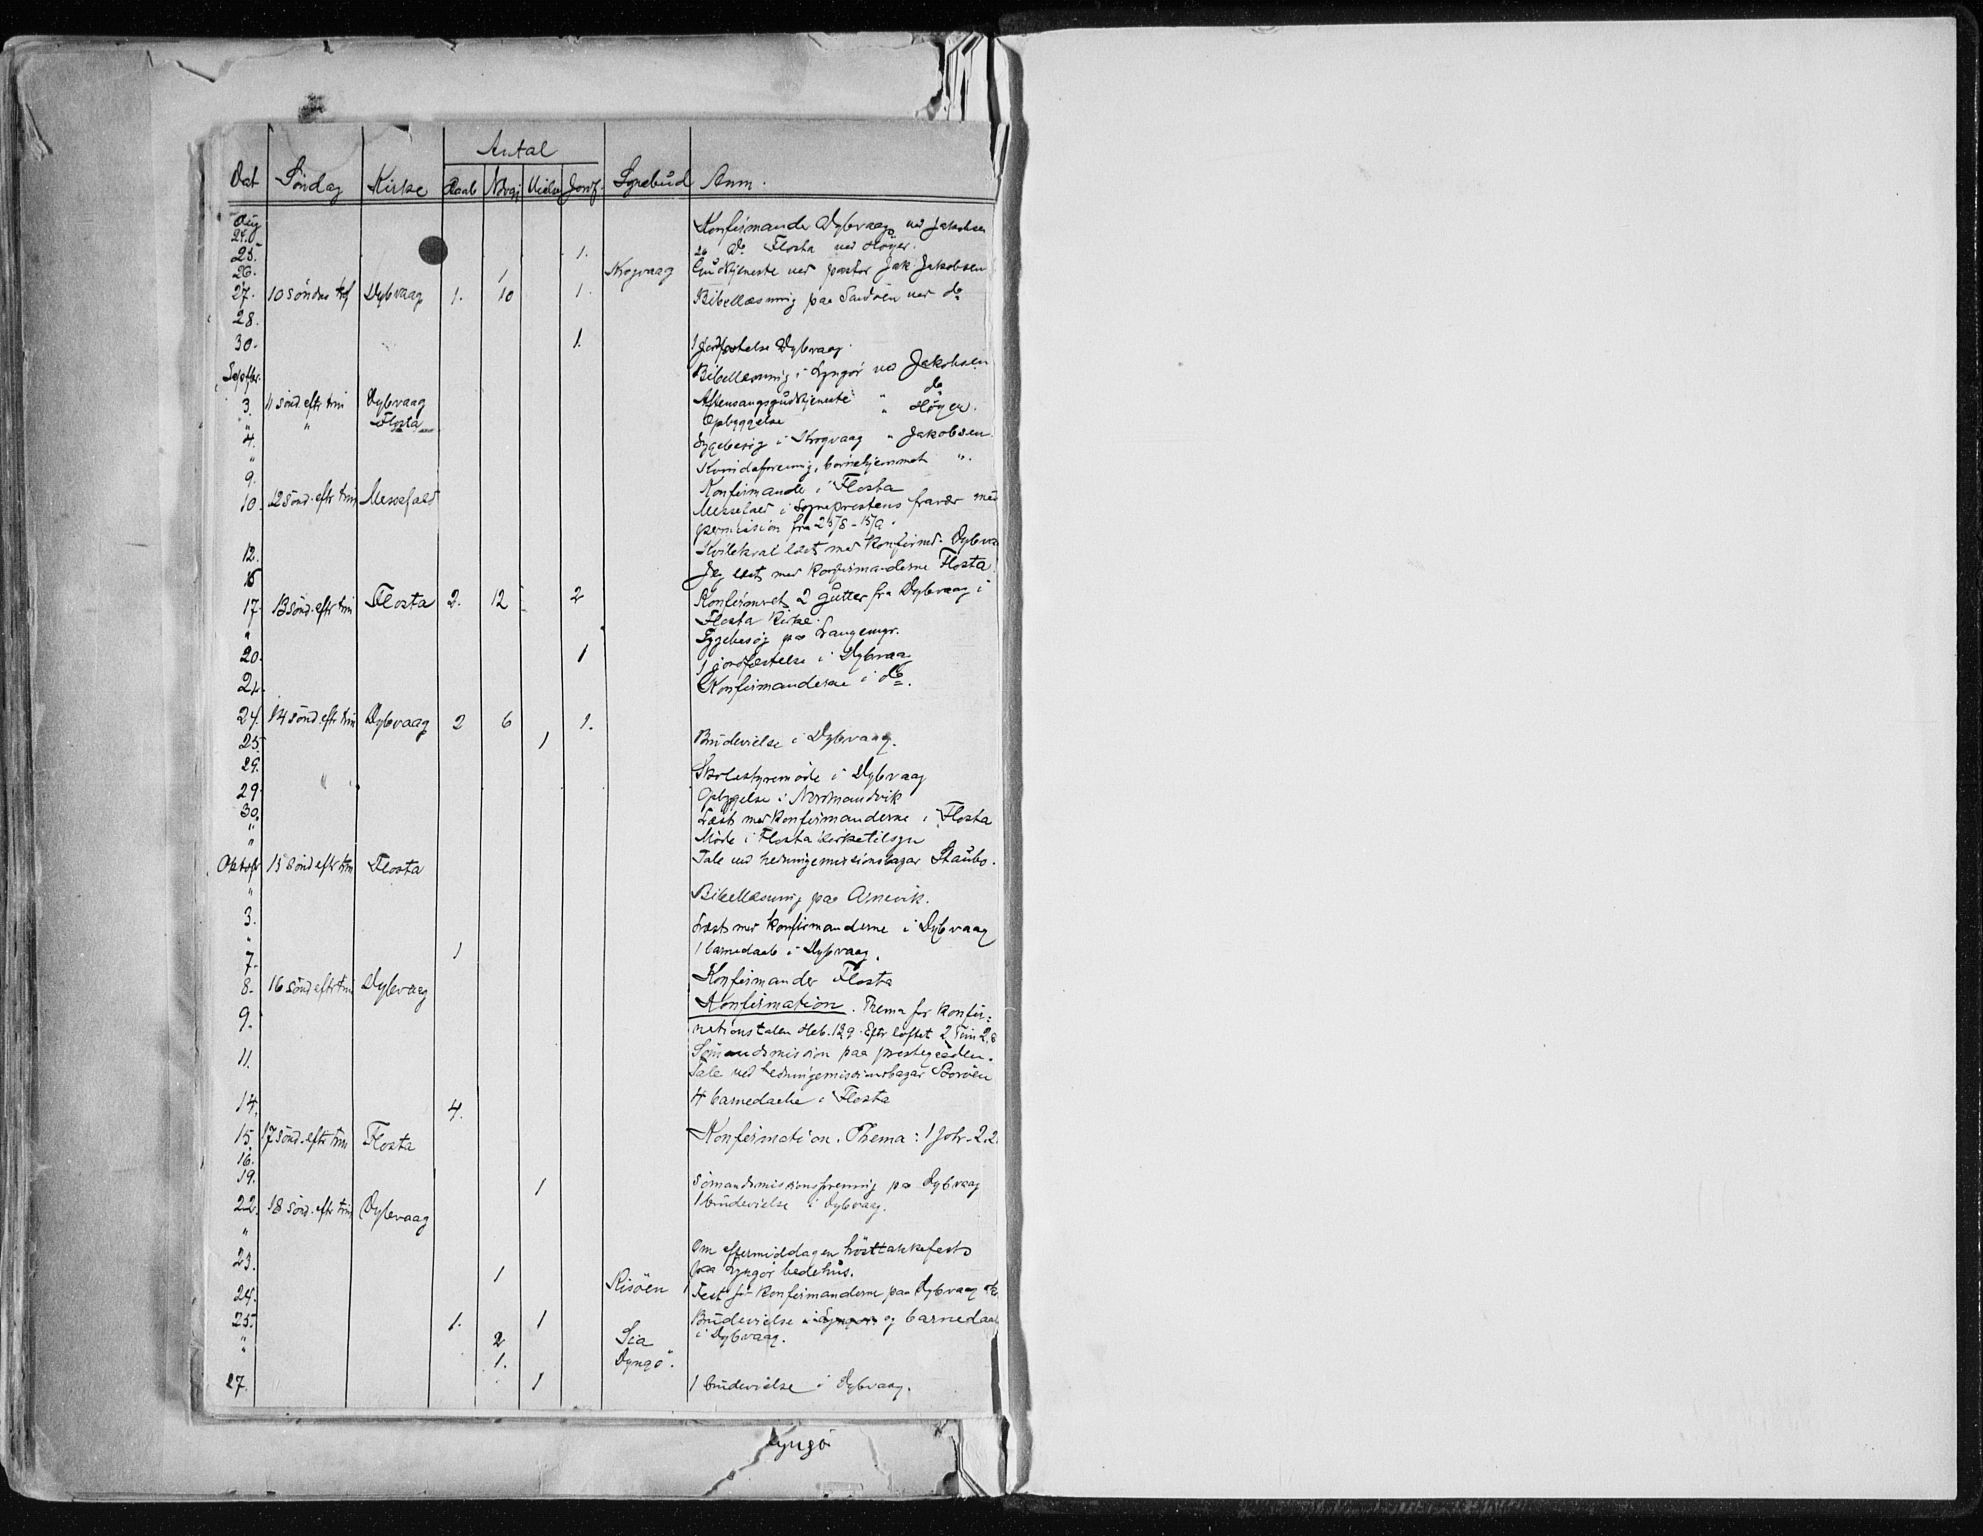 Antal
Dat Söndag Kirke Daab Nvgj Vielse Jordf. Sygebud Anm.
Aug
24. Konfirmander Dybvaag ved Jakobsen
25. 1. 26 do Flosta ved Höyer.
26. 1 Krogvaag Gudstjeneste ved pastor Jak Jakobsen
27. 10 söndag tref Dybvaag 1. 10 1. Bibellæsning paa Sandöen ved do
28.
30. 1. 1 jordfæstelse Dybvaag
Septbr. Bibellæsning i Lyngör ved Jakobsen
3. 11 sönd. eftr trin Dybvaag Aftensangsgudstjeneste " do
" " Flosta Opbyggelse " Höyer.
4. Sygebesög i Krogvaag " Jakobsen
" Kvindeforening, barnehjemmet ".
9. Konfirmande i Flosta
10. 12 sönd. eftr trin Messefald Messefald i Sogneprestens fravær med
permission fra 25/8 - 15/9.
12. læst med konfirmd. Dybvaa
15 Jeg læst med konfirmanderne Flosta
17. 13 sönd. eftr trin Flosta 2. 12 2 Konfirmeret 2 gutter fra Dybvaag i
Flosta Kirke.
" Sygebesög paa Langemyr.
20. 1 1 jordfæstelse i Dybvaa
21. Konfirmanderne i do.
24. 14 sönd. eftr trin Dybvaag 2 6 1.
25. 1 Brudevielse i Dybvaag.
29. " Skolestyremöde i Dybvaag
29. Opbyggelse i Normandvik
30. Læst med konfirmanderne i Flosta
" Möde i Flosta kirketilsyn
" Tale ved hedningemissionsbazar Staubo.
Oktobr 15 sönd eftr trin Flosta
" Bibellæsning paa Arnevik.
3. Læst med konfirmanderne i Dybvaag
" 1 1 barnedaab i Dybvaag.
7. Konfirmander Flosta
8. 16 sönd eftr trin Dybvaag Konfirmation. Thema for konfir=
9. mationstalen Heb. 13,9. Eftr löftet 2 Tim 2,8
Sömandsmission paa prestegaarden.
11. Tale ved hedningemissionsbazar Boröen
14. 4. 4 barnedaabe i Flosta
15. 17 sönd. eftr trin Flosta Konfirmation. Thema: 1 Joh. 2.2
16.
19. 1 Sömandsmissionsforening paa Dybvaag
22. 18 sönd. eftr trin Dybvaag 1 brudevielse i Dybvaag.
" Om eftermiddagen hösttakkefest
23. 1 paa Lyngör bedehus.
24. Risöen Fest for konfirmanderne paa Dybvaag
25. 1. 1 Brudevielse i Lyngör og barnedaab
" 2 Sia i Dybvaag.
1. Dyngö.
27. 1 1 brudevielse i Dybvaag.
Lyngö